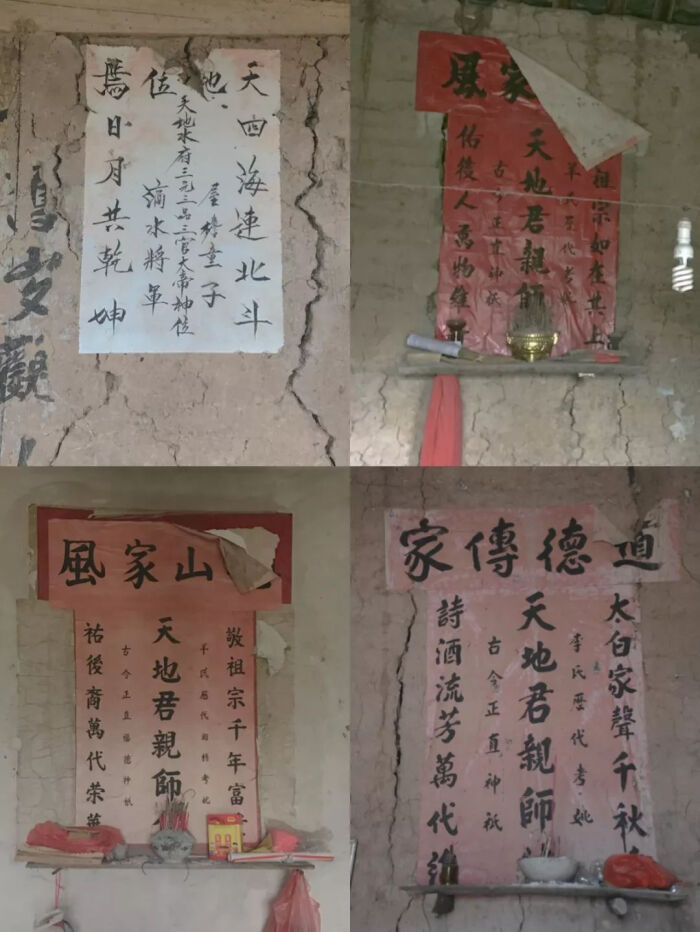 天地位焉
四海連北斗
屋檐童子
天地水府三元三品三官大帝神位
滴水將軍
日月共乾坤
家風
祖宗如在其上
氏歷代考妣
天地君親師
古今正直神祇
佑後人萬物維
山家風
敬祖宗千年富
千氏歷代祖考妣
天地君親師
古今正直福德神祇
祐後裔萬代荣
道德傳家
太白家聲千秋
李氏歷代考妣
天地君親師
古今正直神祇
詩酒流芳萬代